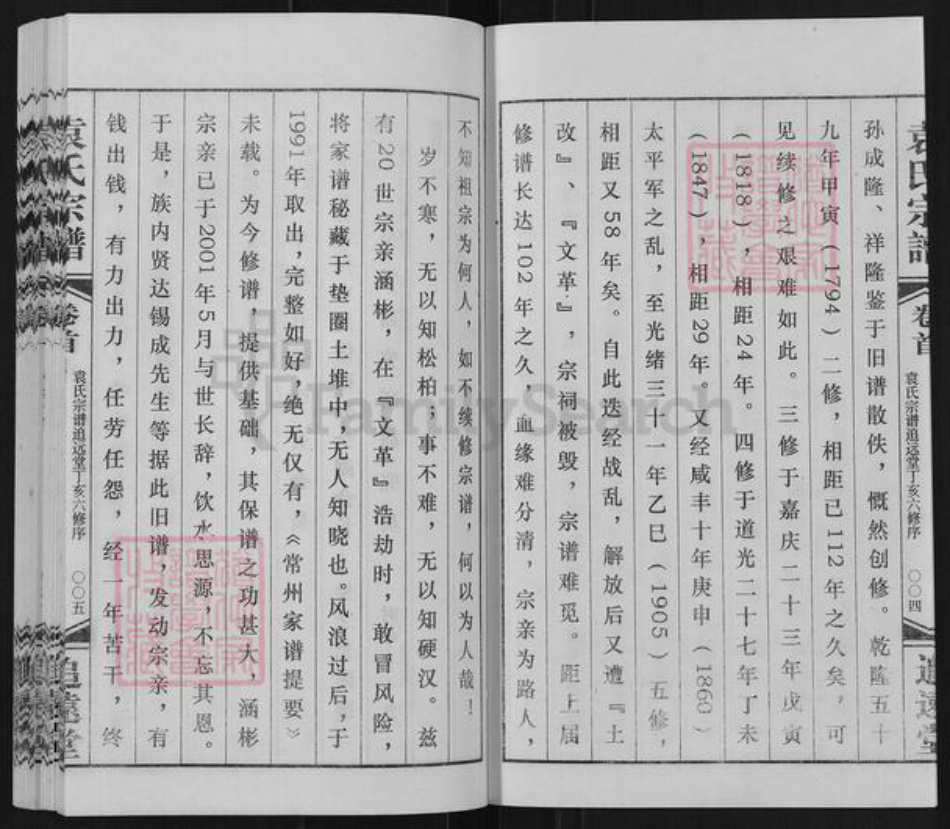 袁氏宗谱
卷首
袁氏宗谱追远堂丁亥六修序
〇〇四
追远堂
孙成隆、祥隆鉴于旧谱散佚，慨然创修。乾隆五十
九年甲寅（1794）二修，相距已112年之久矣，可
见续修之艰难如此。三修于嘉庆二十三年戊寅
（1818），相距24年。四修于道光二十七年丁未
（1847），相距29年。又经咸丰十年庚申（1860）
太平军之乱，至光绪三十一年乙巳（1905）五修，
相距又58年矣。自此迭经战乱，解放后又遭『土
改』、『文革』，宗祠被毁，宗谱难觅。距上届
修谱长达102年之久，血缘难分清，宗亲为路人，
不知祖宗为何人，如不续修宗谱，何以为人哉！
岁不寒，无以知松柏；事不难，无以知硬汉。兹
有20世宗亲涵彬，在『文革』浩劫时，敢冒风险，
将家谱秘藏于垫圈土堆中，无人知晓也。风浪过后，于
1991年取出，完整如好，绝无仅有，《常州家谱提要》
未载。为今修谱，提供基础，其保谱之功甚大，涵彬
宗亲已于2001年5月与世长辞，饮水思源，不忘其恩。
于是，族内贤达锡成先生等据此旧谱，发动宗亲，有
钱出钱，有力出力，任劳任怨，经一年苦干，终
袁氏宗谱
卷首
袁氏宗谱追远堂丁亥六修序
〇〇五
追远堂
FamilySearch